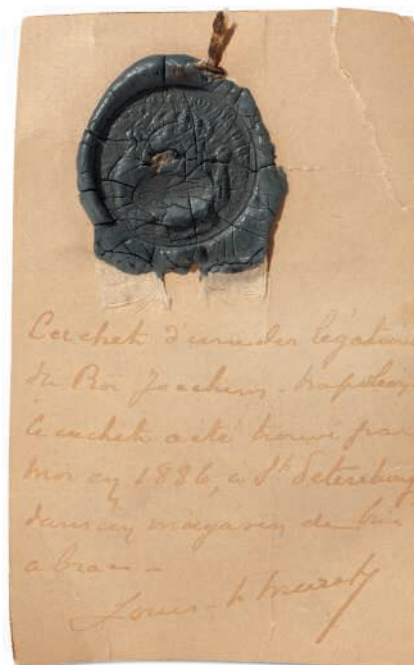 Cachet d'une des légations
du Roi Joachim-Napoléon
le cachet a été trouvé par
moi en 1886, à St Petersbourg
dans un magasin de bric
a brac -
Louis